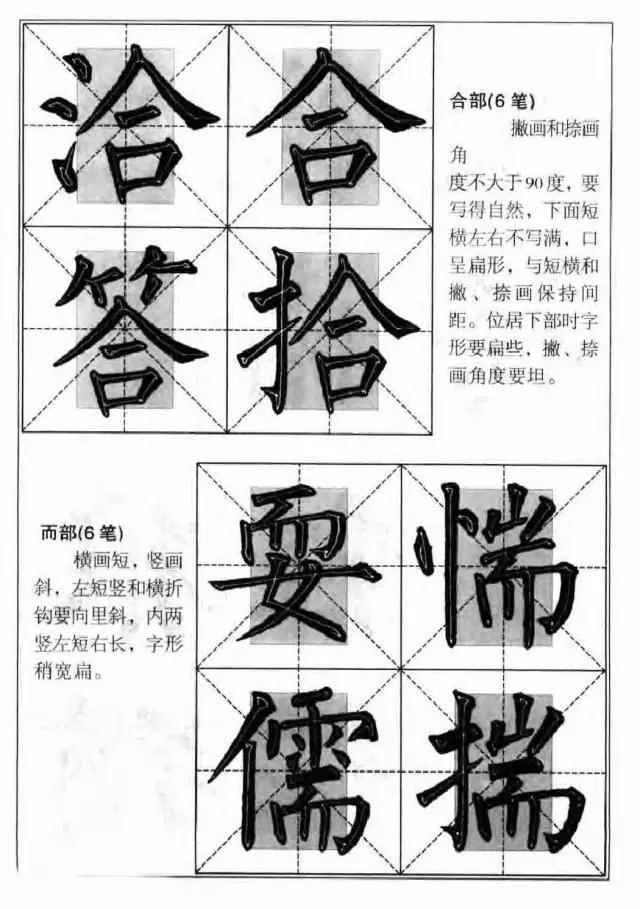 洽合
答拾
合部(6笔)
撇画和捺画
角
度不大于90度，要
写得自然，下面短
横左右不写满，口
呈扁形，与短横和
撇、捺画保持间
距。位居下部时字
形要扁些，撇、捺
画角度要坦。
而部(6笔)
横画短，竖画
斜，左短竖和横折
钩要向里斜，内两
竖左短右长，字形
稍宽扁。
耍惴
儒揣